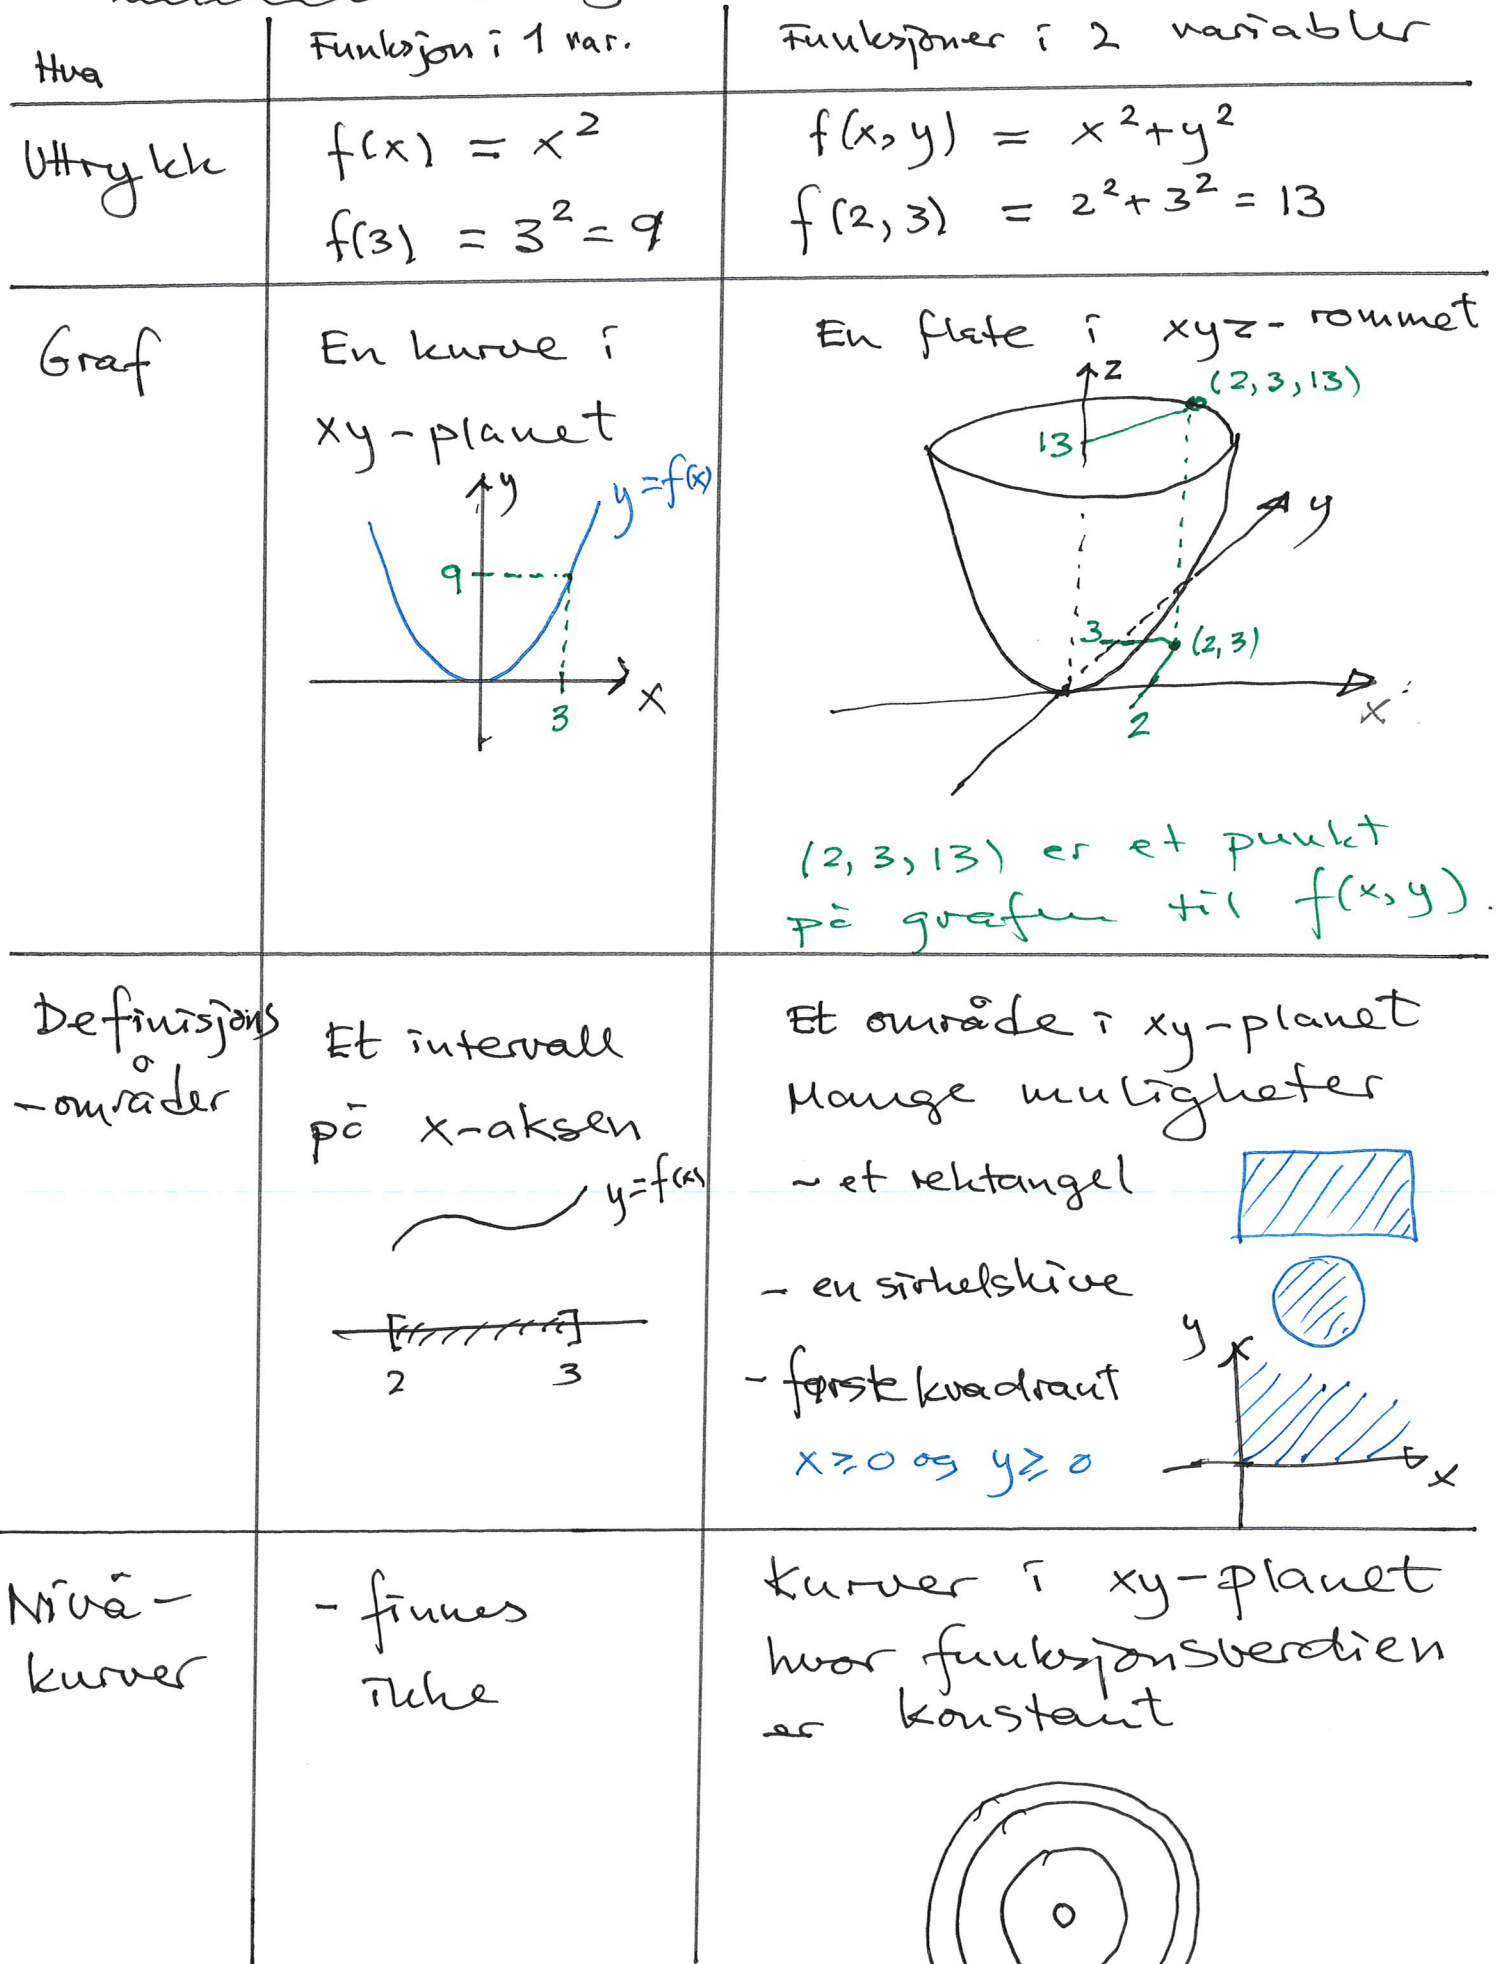 Hva
Funksjon i 1 var.
Funksjoner i 2 variabler
Uttrykk
f(x) = x²
f(3) = 3² = 9
f(x, y) = x² + y²
f(2, 3) = 2² + 3² = 13
Graf
En kurve i
xy-planet
y
y = f(x)
9
3
x
En flate i xyz-rommet
z
(2, 3, 13)
13
y
3
(2, 3)
2
x
(2, 3, 13) er et punkt
på grafen til f(x, y).
Definisjons
-områder
Et intervall
på x-aksen
y = f(x)
2
3
Et område i xy-planet
Mange muligheter
- et rektangel
- en sirkelskive
- første kvadrant
x ≥ 0 og y ≥ 0
y
x
Nivå-
kurver
- finnes
ikke
Kurver i xy-planet
hvor funksjonsverdien
er konstant